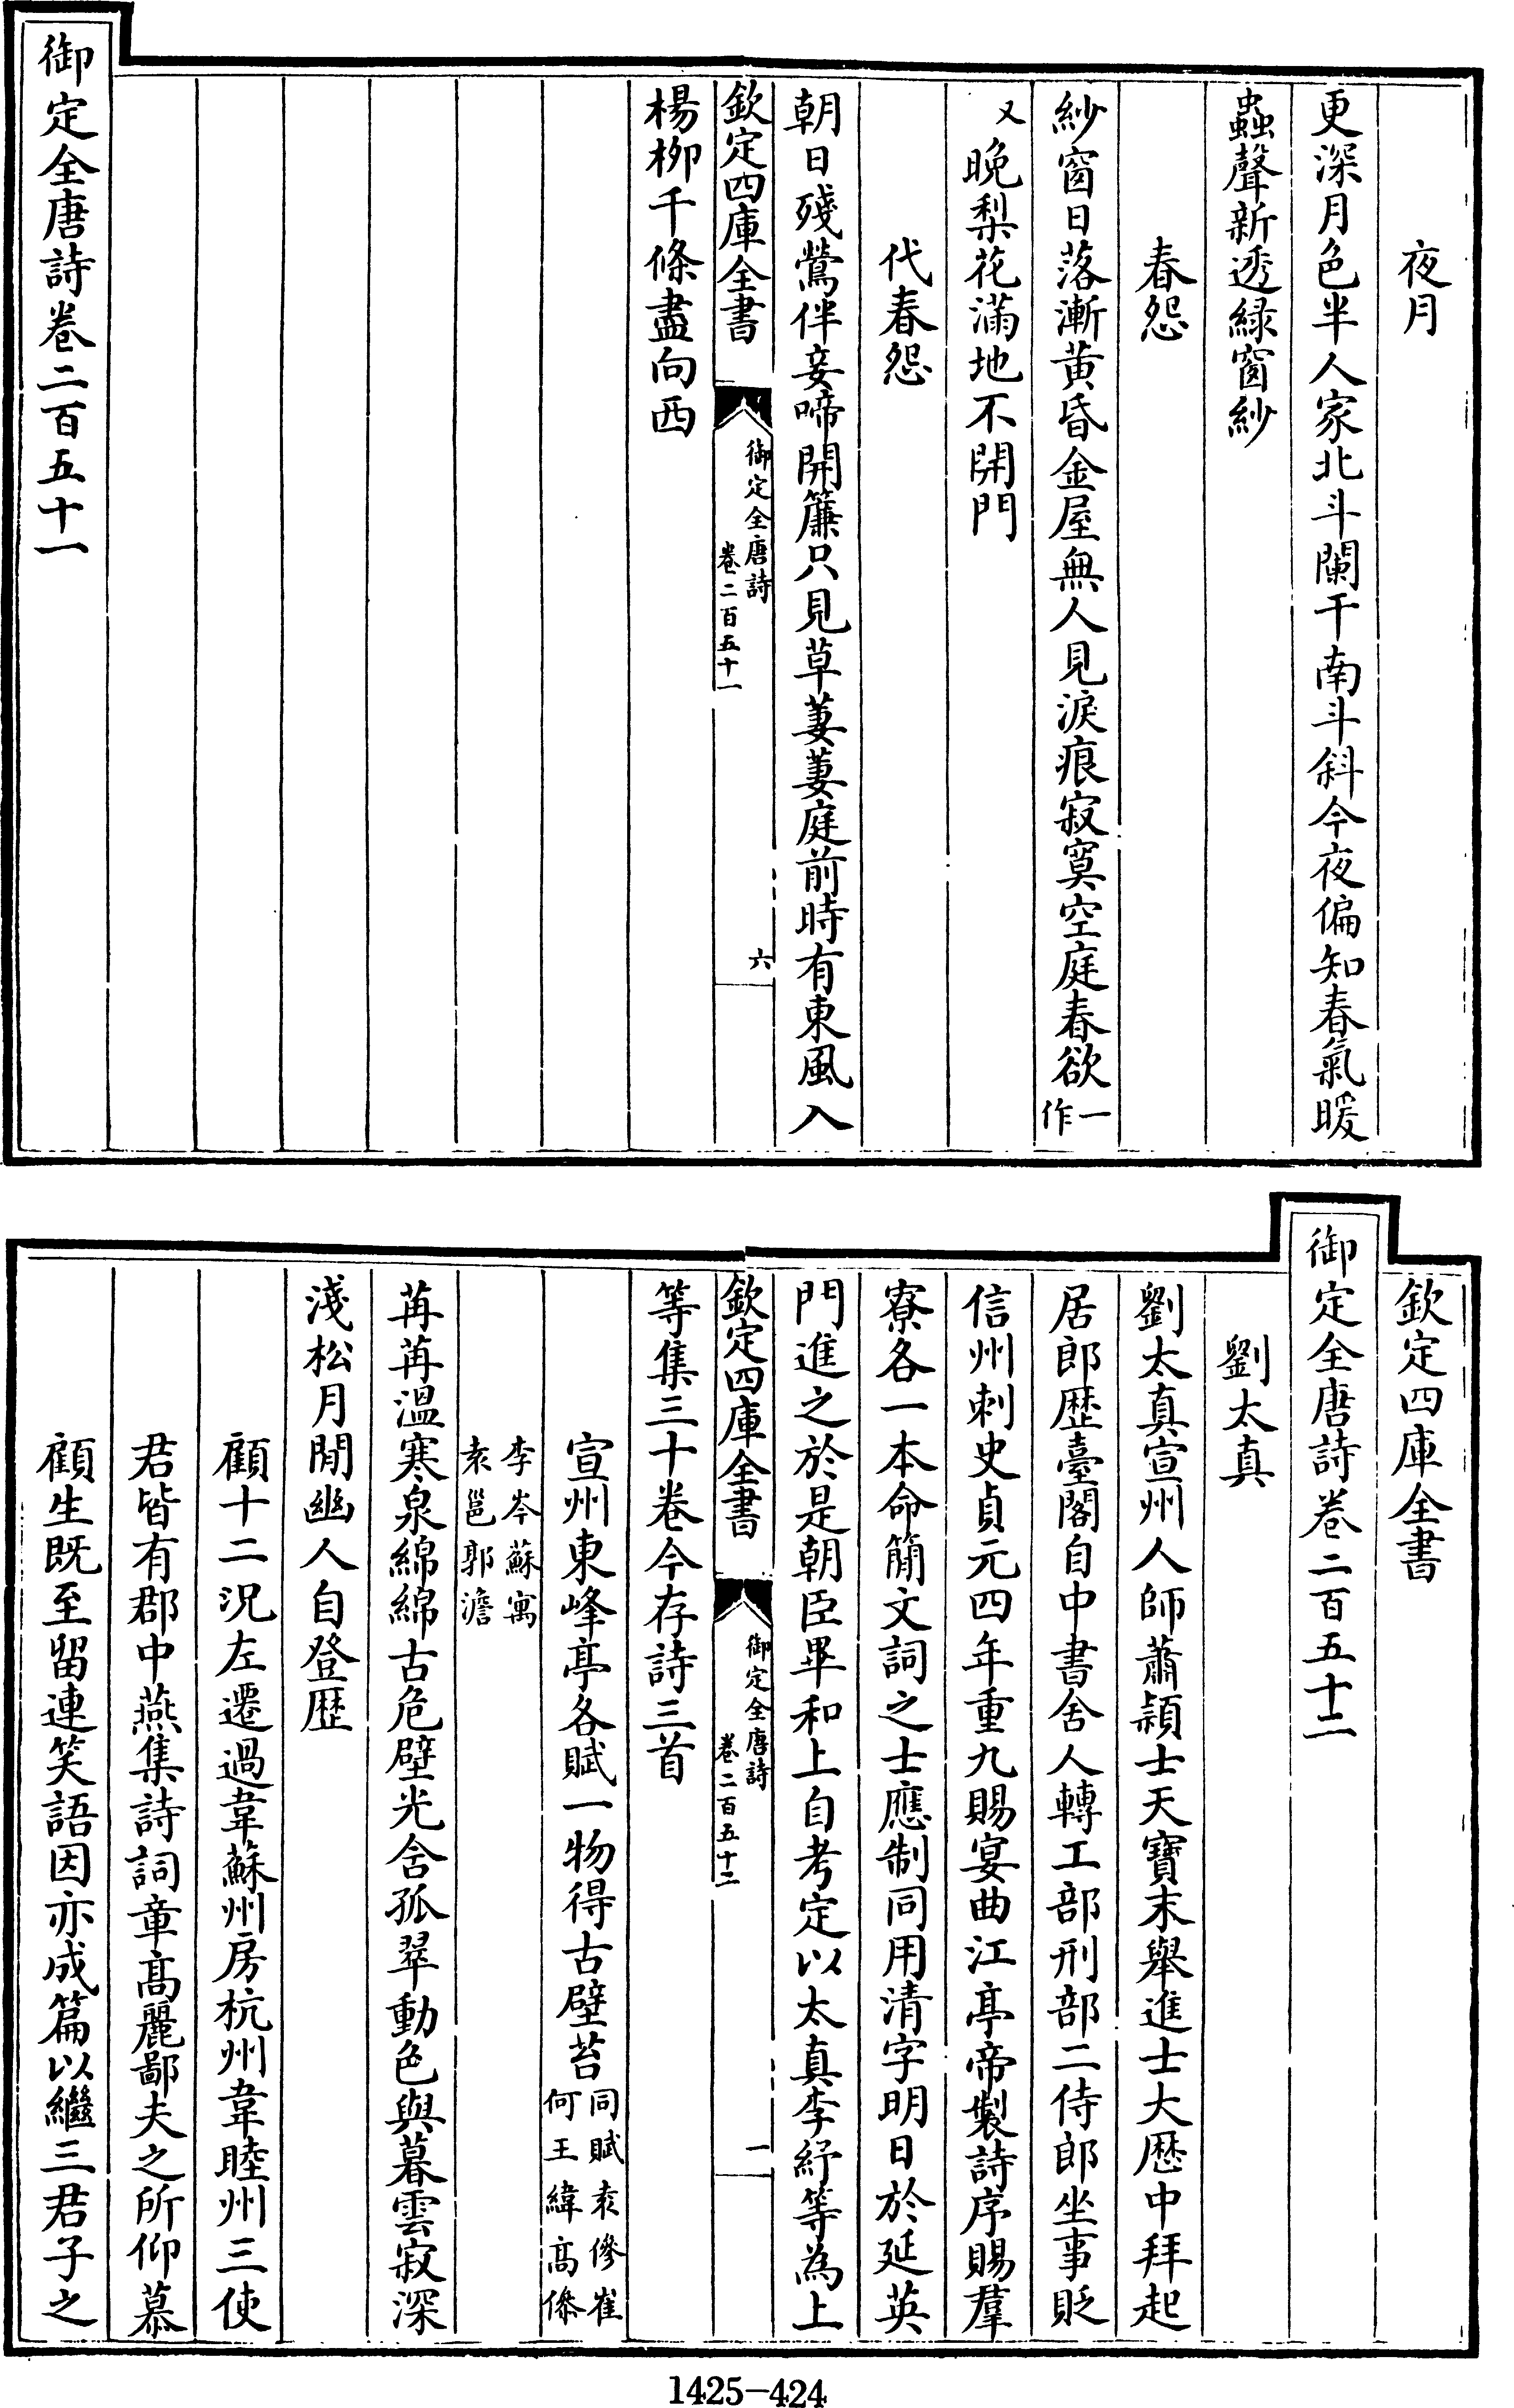 夜月
更深月色半人家北斗闌干南斗斜今夜偏知春氣暖
蟲聲新透綠窗紗
春怨
紗窗日落漸黃昏金屋無人見淚痕寂寞空庭春欲一作
又晚梨花滿地不開門
代春怨
朝日殘鶯伴妾啼開簾只見草萋萋庭前時有東風入
欽定四庫全書
御定全唐詩
卷二百五十一
六
楊柳千條盡向西
御定全唐詩卷二百五十一
欽定四庫全書
御定全唐詩卷二百五十二
劉太真
劉太真宣州人師蕭潁士天寶末舉進士大歷中拜起
居郎歷臺閣自中書舍人轉工部刑部二侍郎坐事貶
信州刺史貞元四年重九賜宴曲江亭帝製詩序賜羣
寮各一本命簡文詞之士應制同用清字明日於延英
門進之於是朝臣畢和上自考定以太真李紓等為上
欽定四庫全書
御定全唐詩
卷二百五十二
一
等集三十卷今存詩三首
宣州東峰亭各賦一物得古壁苔同賦袁傪崔
何王緯高傪
李岑蘇寓
袁邕郭澹
苒苒溫寒泉綿綿古危壁光含孤翠動色與暮雲寂深
淺松月閒幽人自登歷
顧十二況左遷過韋蘇州房杭州韋睦州三使
君皆有郡中燕集詩詞章高麗鄙夫之所仰慕
顧生既至留連笑語因亦成篇以繼三君子之
1425-424